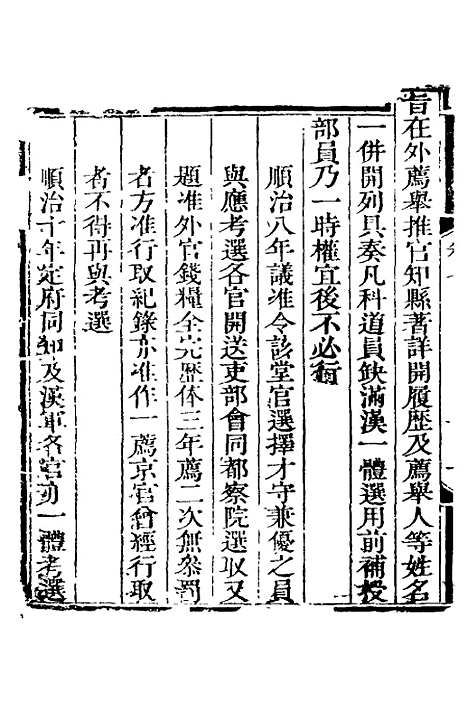 旨在外薦舉推官知縣著詳開履歷及薦舉人等姓名
一併開列具奏凡科道員缺滿漢一體選用前補授
部員乃一時權宜後不必行
順治八年議准令該堂官選擇才守兼優之員
與應考選各官開送吏部會同都察院選取又
題准外官錢糧全完歷俸三年薦二次無叅罰
者方准行取紀錄亦准作一薦京官曾經行取
者不得再與考選
順治十年定府同知及漢軍各官一體考選